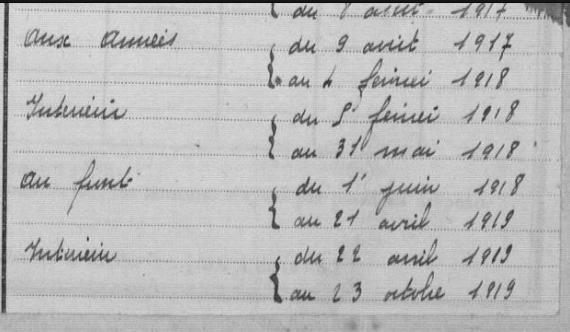 du 8 août 1917
aux armées du 9 août 1917
au 4 février 1918
Intérieur du 5 février 1918
au 31 mai 1918
au front du 1er juin 1918
au 21 avril 1919
Intérieur du 22 avril 1919
au 23 octobre 1919